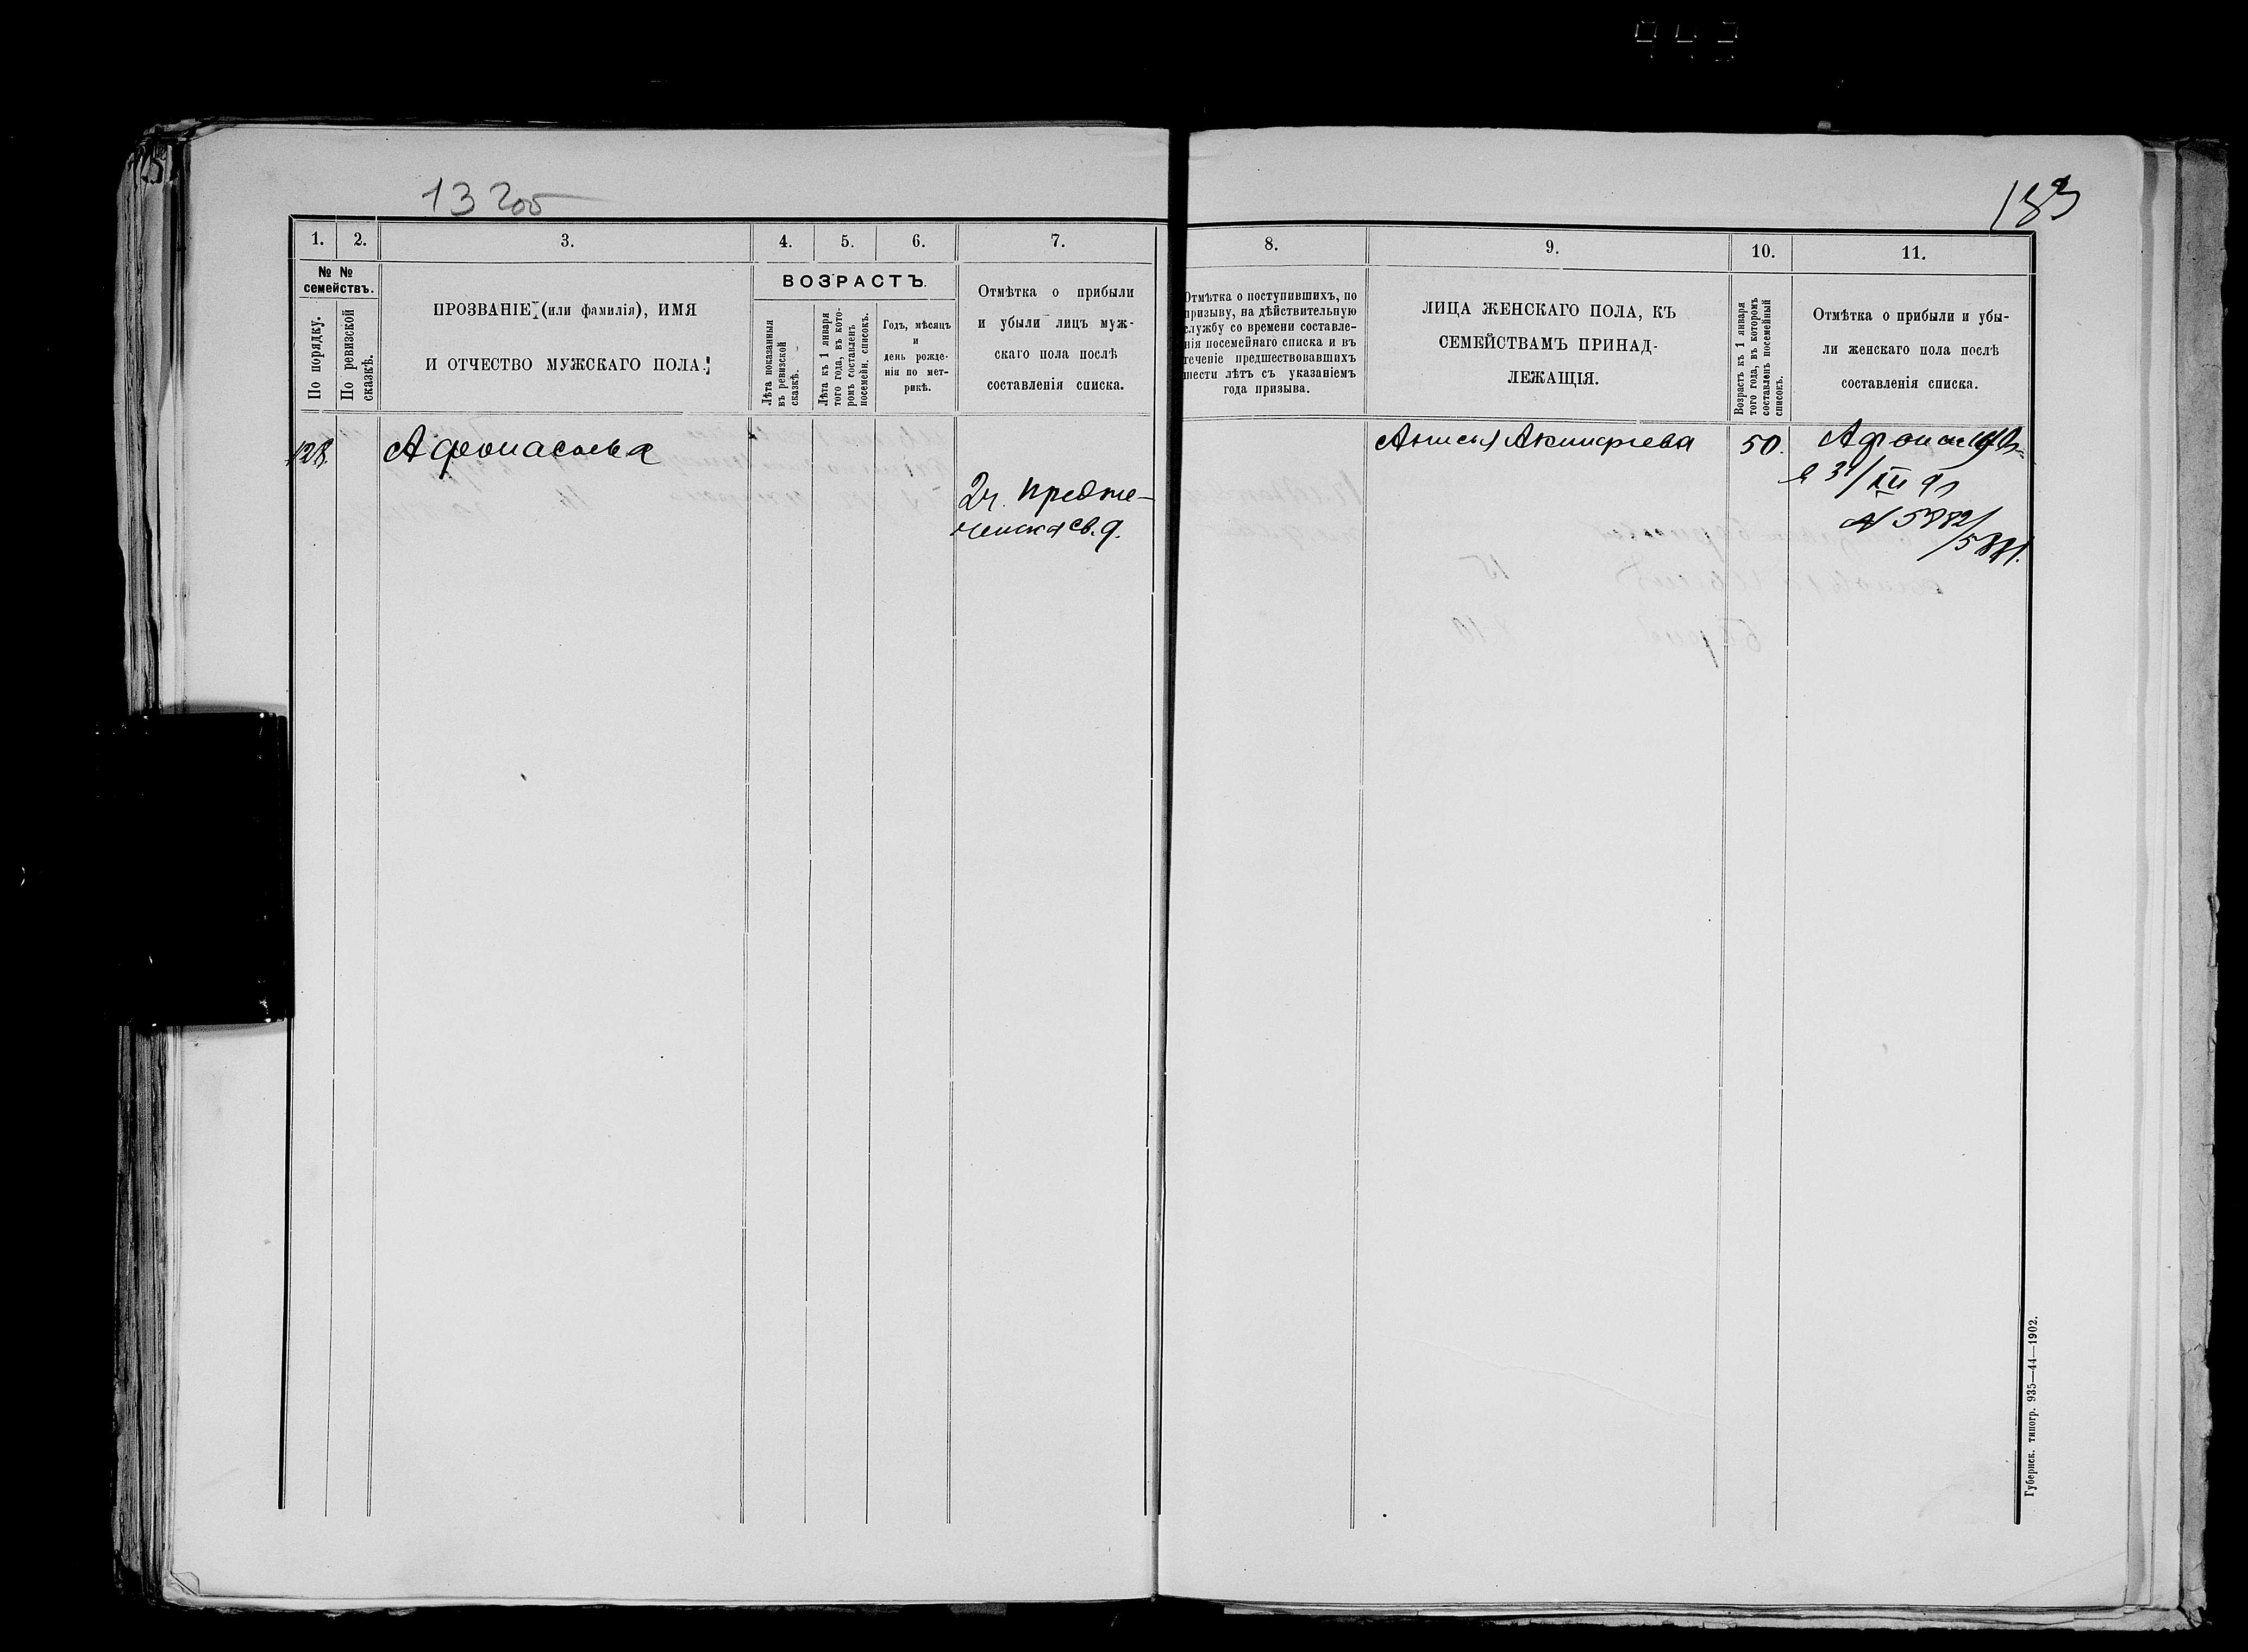 13 205
183
1.
2.
3.
4.
5.
6.
7.
8.
9.
10.
11.
№ №
семействъ.
По порядку.
По ревизской
сказкѣ.
ПРОЗВАНІЕ (или фамилія), ИМЯ
И ОТЧЕСТВО МУЖСКАГО ПОЛА.
ВОЗРАСТЪ.
Лѣта показанныя
въ ревизской
сказкѣ.
Лѣта къ 1 января
того года, въ кото-
ромъ составленъ
посемейн. списокъ.
Годъ, мѣсяцъ
и
день рожде-
нія по мет-
рикѣ.
Отмѣтка о прибыли
и убыли лицъ муж-
скаго пола послѣ
составленія списка.
Отмѣтка о поступившихъ, по
призыву, на дѣйствительную
службу со времени составле-
нія посемейнаго списка и въ
теченіе предшествовавшихъ
шести лѣтъ съ указаніемъ
года призыва.
ЛИЦА ЖЕНСКАГО ПОЛА, КЪ
СЕМЕЙСТВАМЪ ПРИНАД-
ЛЕЖАЩІЯ.
Возрастъ къ 1 января
того года, въ которомъ
составленъ посемейный
списокъ.
Отмѣтка о прибыли и убы-
ли женскаго пола послѣ
составленія списка.
128.
Афонасьева
2ч. Предте-
ченская св. д.
Анисья Акинфіева
50.
31/XII
№ 5882/
Губернск. типогр. 935—44—1902.